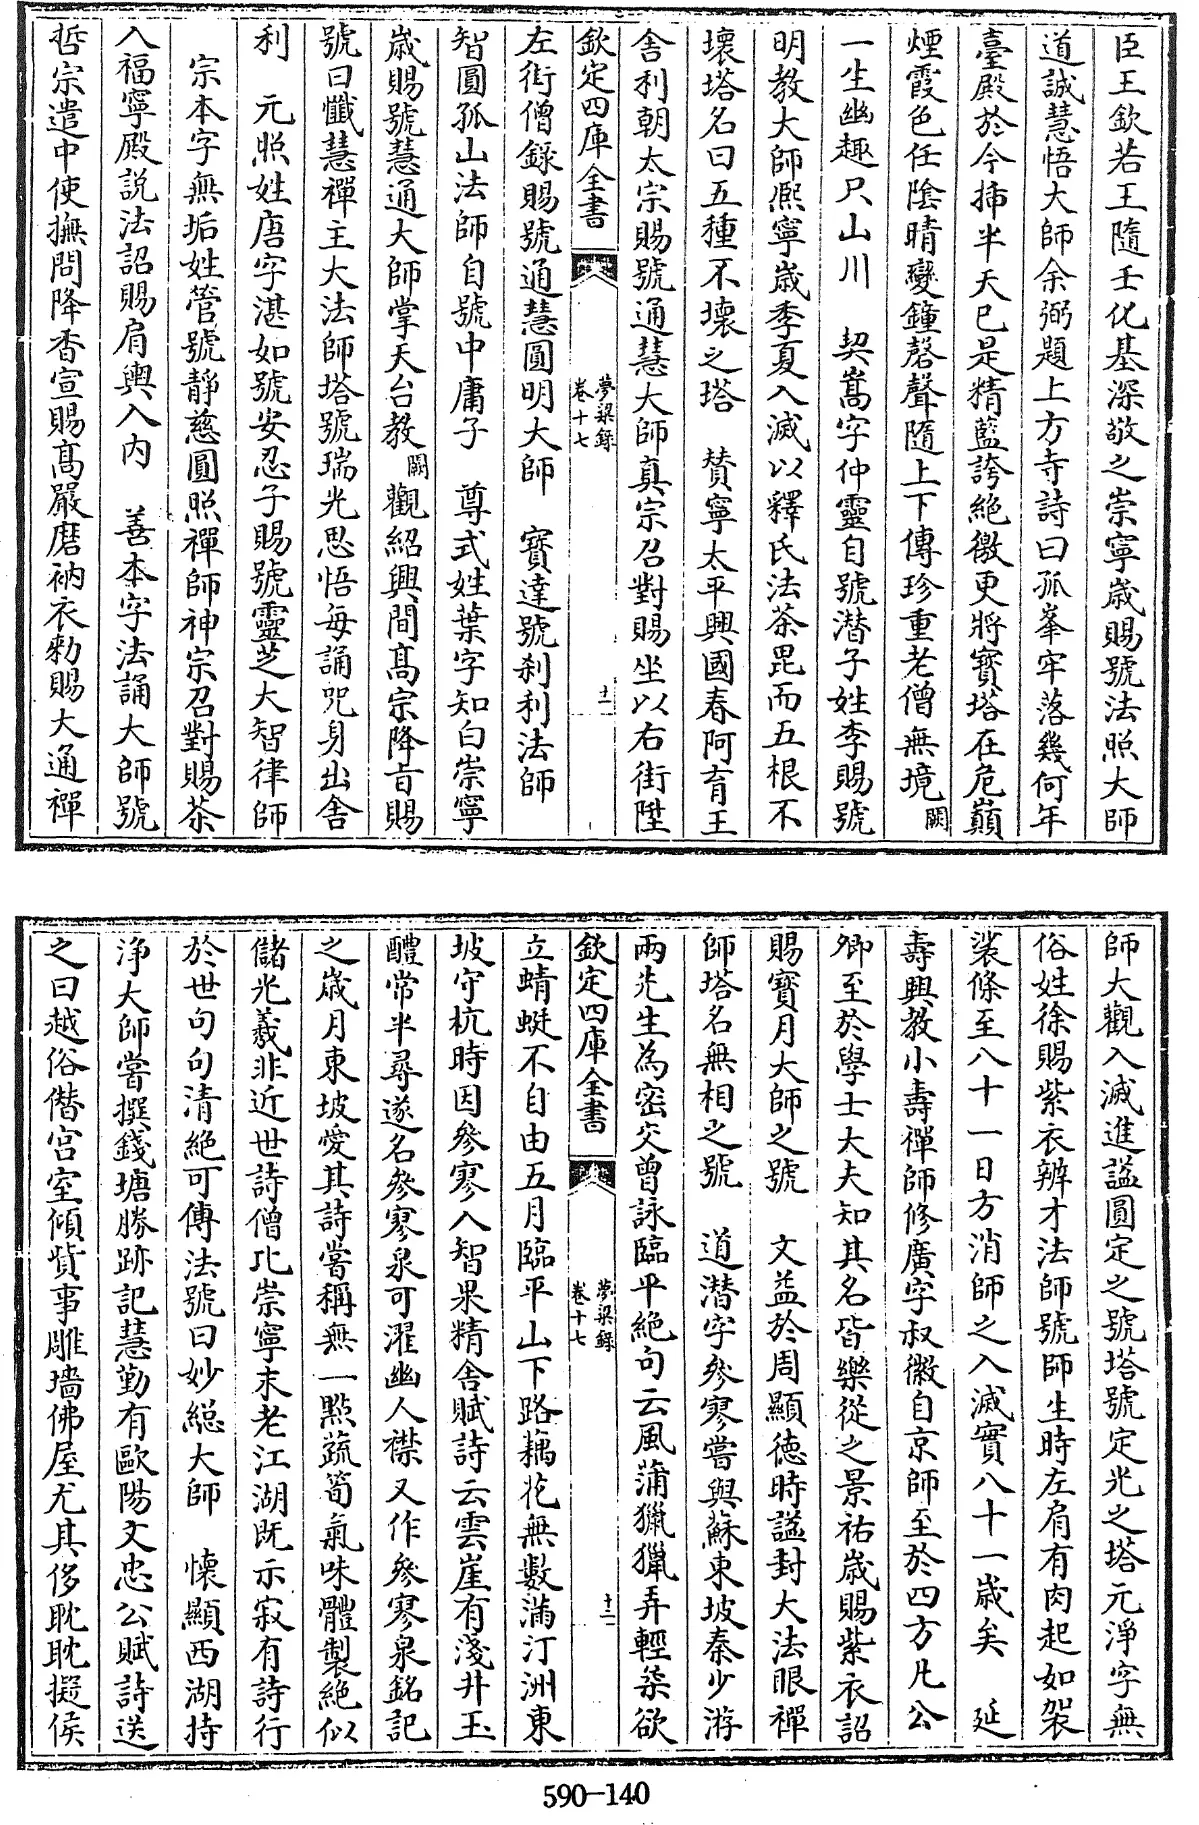 臣王欽若王隨壬化基深敬之崇寧歳賜號法照大師
道誠慧悟大師余弼題上方寺詩曰孤峯牢落幾何年
臺殿於今揷半天已是精藍誇絶徼更將寳塔在危巔
煙霞色任陰晴變鐘磬聲隨上下傳珍重老僧無境闕
一生幽趣只山川　契嵩字仲靈自號潜子姓李賜號
明教大師熈寧歳季夏入滅以釋氏法茶毘而五根不
壊塔名曰五種不壊之塔　賛寧太平興國春阿育王
舎利朝太宗賜號通慧大師真宗召對賜坐以右街陞
欽定四庫全書
夢粱錄
卷十七
十一
左街僧錄賜號通慧圓明大師　寳達號刹利法師
智圓孤山法師自號中庸子　尊式姓葉字知白崇寧
歳賜號慧通大師掌天台教闕觀紹興間髙宗降㫖賜
號曰懺慧禪主大法師塔號瑞光思悟每誦咒身出舎
利　元照姓唐字湛如號安忍子賜號靈芝大智律師
宗本字無垢姓管號靜慈圓照禪師神宗召對賜茶
入福寧殿説法詔賜肩輿入内　善本字法誦大師號
哲宗遣中使撫問降香宣賜髙嚴磨衲衣勅賜大通禪
師大觀入滅進諡圓定之號塔號定光之塔元淨字無
俗姓徐賜紫衣辨才法師號師生時左肩有肉起如袈
裟條至八十一日方消師之入滅實八十一歳矣　延
壽興教小壽禪師修廣字叔徽自京師至於四方凡公
卿至於學士大夫知其名皆樂從之景祐歳賜紫衣詔
賜寳月大師之號　文益於周顯徳時諡封大法眼禪
師塔名無相之號　道潜字參寥嘗與蘇東坡秦少游
兩先生為密交曾詠臨平絶句云風蒲獵獵弄輕柔欲
欽定四庫全書
夢粱錄
卷十七
十二
立蜻蜓不自由五月臨平山下路藕花無數滿汀洲東
坡守杭時因參寥入智果精舎賦詩云雲崖有淺井玉
醴常半尋遂名參寥泉可濯幽人襟又作參寥泉銘記
之歳月東坡愛其詩嘗稱無一㸃蔬筍氣味體製絶似
儲光羲非近世詩僧比崇寧末老江湖既示寂有詩行
於世句句清絶可傳法號曰妙總大師　懐顯西湖持
浄大師嘗撰錢塘勝跡記慧勤有歐陽文忠公賦詩送
之曰越俗僣宫室傾貲事雕墻佛屋尤其侈耽耽擬侯
590-140